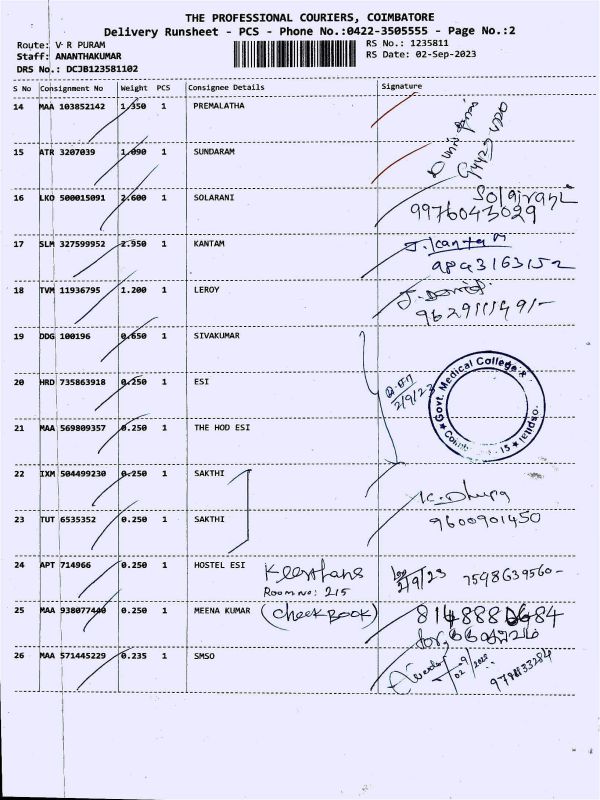 THE PROFESSIONAL COURIERS, COIMBATORE
Delivery Runsheet - PCS - Phone No.:0422-3505555 - Page No.:2
Route: V R PURAM
RS No.: 1235811
Staff: ANANTHAKUMAR
RS Date: 02-Sep-2023
DRS No.: DCJB123581102
S No Consignment No Weight PCS Consignee Details Signature
14 MAA 103852142 1.350 1 PREMALATHA
15 ATR 3207039 1.090 1 SUNDARAM
16 LKO 500015091 2.600 1 SOLARANI
9976043029
17 SLM 327599952 2.950 1 KANTAM J. Kantam
9843163152
18 TVM 11936795 1.200 1 LEROY
19 DDG 100196 0.650 1 SIVAKUMAR
20 HRD 735863918 0.250 1 ESI 2/9/23
Govt. Medical College &
Hospital
Coimbatore - 15
21 MAA 569809357 0.250 1 THE HOD ESI
22 IXM 504499230 0.250 1 SAKTHI
23 TUT 6535352 0.250 1 SAKTHI 9600901450
24 APT 714966 0.250 1 HOSTEL ESI 2/9/23 7598639560
Room no: 215
25 MAA 938077440 0.250 1 MEENA KUMAR (cheek Book)
26 MAA 571445229 0.235 1 SMSO